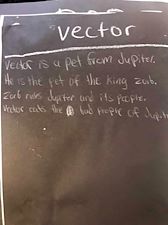 vector
Vector is a pet from Jupiter.
He is the pet of the King Zorb.
Zorb rules Jupiter and its people.
Vector eats the bad people of Jupiter